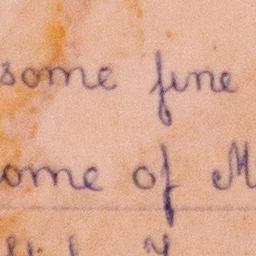 some fine
ome of M